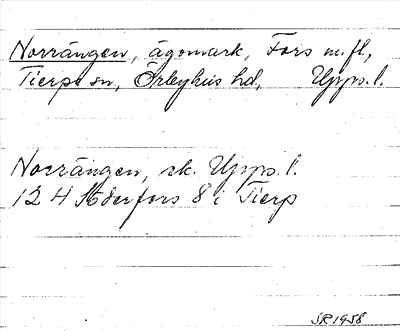 Norrängen, ägomark, Fors m.fl,
Tierps sn, Örbyhus hd, Upps. l.
Norrängen, sk. Upps. l.
124 Söderfors 8 i Tierp
SR 1958